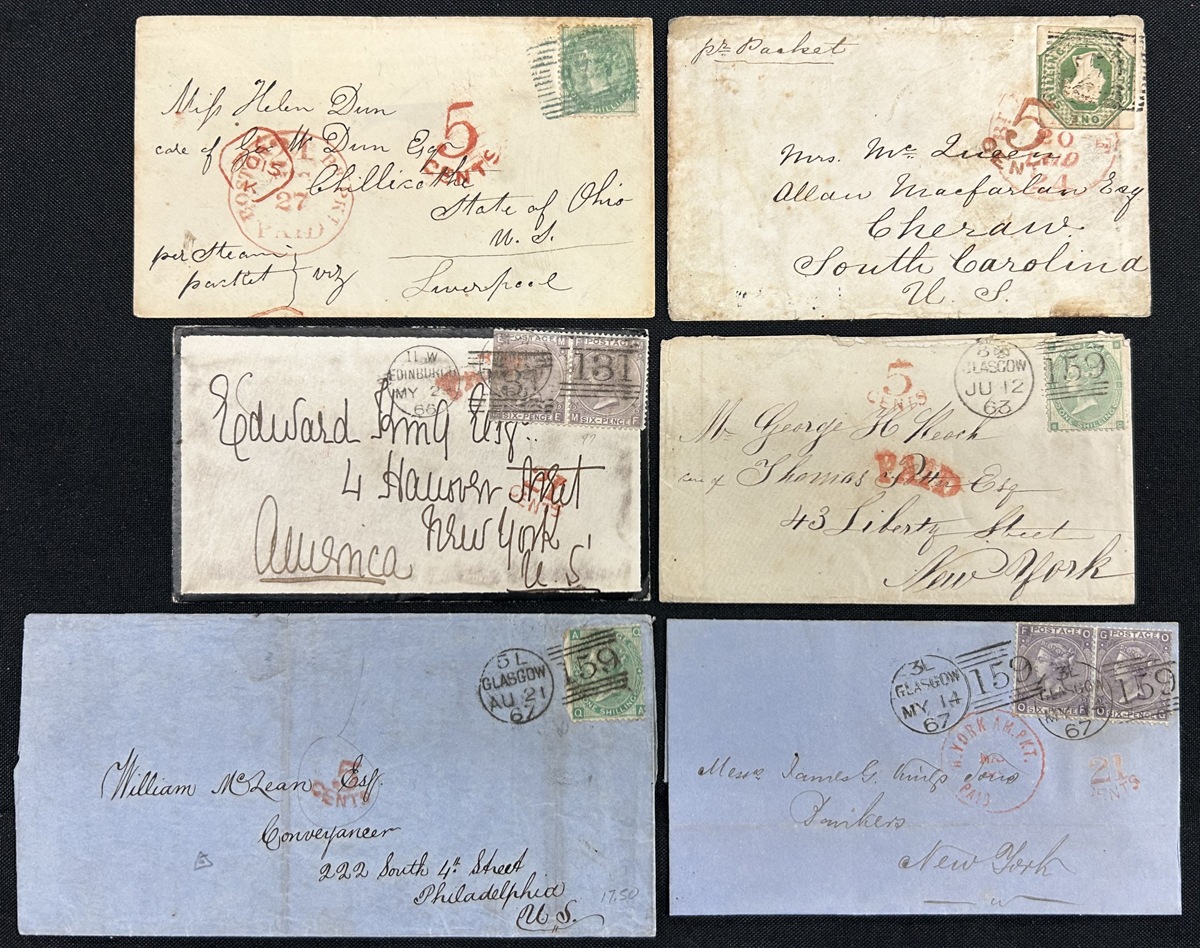 Miss Helen Dun
care of Geo W Dun Esqr
Chillicothe
State of Ohio
U. S.
per Steam
packet
Liverpool
5
CENTS
27
PAID
pr Packet
ONE
5
CENTS
20
Mrs. Mc Queen
Allan Macfarlan Esq
Cheraw
South Carolina
U. S.
11 W
EDINBURGH
MY 2
66
131
POSTAGE
SIX-PENCE
SIX-PENCE
Edward King Esqr.
4 Hanover Street
New York
U. S.
America
CENTS
5
CENTS
GLASGOW
JU 12
63
159
ONE SHILLING
Mr George H
care of Thomas
Esq
PAID
43 Liberty Street
New York
5 L
GLASGOW
AU 21
67
159
ONE SHILLING
A Q
Q A
5
CENTS
William McLean Esq.
Conveyancer
222 South 4th Street
Philadelphia
U. S.
17.50
3L
GLASGOW
MY 14
67
159
F POSTAGE O
G POSTAGE O
O SIX-PENCE F
O SIX-PENCE G
3L
67
159
N. YORK AM. PKT.
PAID
21
CENTS
Messrs James G. Kings Sons
Bankers
New York